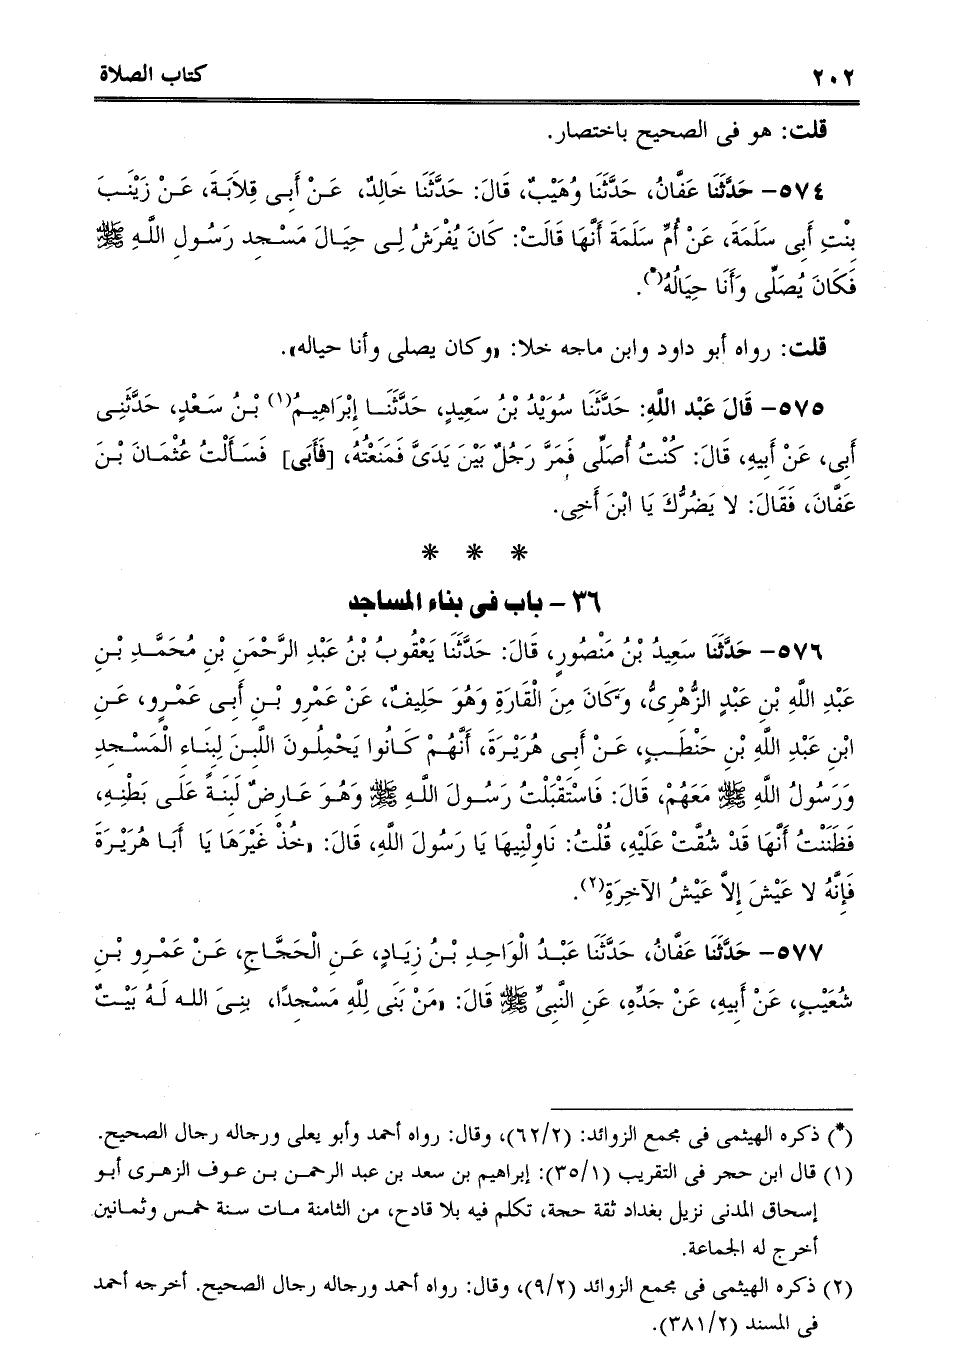 ٢٠٢ كتاب الصلاة
قلت: هو فى الصحيح باختصار.
٥٧٤- حَدَّثَنَا عَفَّانُ، حَدَّثَنَا وُهَيْبٌ، قَالَ: حَدَّثَنَا خَالِدٌ، عَنْ أَبِى قِلاَبَةَ، عَنْ زَيْنَبَ
بِنْتِ أَبِى سَلَمَةَ، عَنْ أُمِّ سَلَمَةَ أَنَّهَا قَالَتْ: كَانَ يُفْرَشُ لِى حِيَالَ مَسْجِدِ رَسُولِ اللَّهِ ﷺ
فَكَانَ يُصَلِّى وَأَنَا حِيَالُهُ(*).
قلت: رواه أبو داود وابن ماجه خلا: «وكان يصلى وأنا حياله».
٥٧٥- قَالَ عَبْد اللَّهِ: حَدَّثَنَا سُوَيْدُ بْنُ سَعِيدٍ، حَدَّثَنَا إِبْرَاهِيمُ(١) بْنُ سَعْدٍ، حَدَّثَنِى
أَبِى، عَنْ أَبِيهِ، قَالَ: كُنْتُ أُصَلِّى فَمَرَّ رَجُلٌ بَيْنَ يَدَىَّ فَمَنَعْتُهُ، [فَأَبَى] فَسَأَلْتُ عُثْمَانَ بْنَ
عَفَّانَ، فَقَالَ: لا يَضُرُّكَ يَا ابْنَ أَخِى.
* * *
٣٦ - باب فى بناء المساجد
٥٧٦- حَدَّثَنَا سَعِيدُ بْنُ مَنْصُورٍ، قَالَ: حَدَّثَنَا يَعْقُوبُ بْنُ عَبْدِ الرَّحْمَنِ بْنِ مُحَمَّدِ بْنِ
عَبْدِ اللَّهِ بْنِ عَبْدٍ الزُّهْرِىُّ، وَكَانَ مِنَ الْقَارَةِ وَهُوَ حَلِيفٌ، عَنْ عَمْرِو بْنِ أَبِى عَمْرٍو، عَنِ
ابْنِ عَبْدِ اللَّهِ بْنِ حَنْطَبٍ، عَنْ أَبِى هُرَيْرَةَ، أَنَّهُمْ كَانُوا يَحْمِلُونَ اللَّبِنَ لِبِنَاءِ الْمَسْجِدِ
وَرَسُولُ اللَّهِ ﷺ مَعَهُمْ، قَالَ: فَاسْتَقْبَلْتُ رَسُولَ اللَّهِ ﷺ وَهُوَ عَارِضٌ لَبِنَةً عَلَى بَطْنِهِ،
فَظَنَنْتُ أَنَّهَا قَدْ شُقَّتْ عَلَيْهِ، قُلْتُ: نَاوِلْنِيهَا يَا رَسُولَ اللَّهِ، قَالَ: «خُذْ غَيْرَهَا يَا أَبَا هُرَيْرَةَ
فَإِنَّهُ لا عَيْشَ إِلاَّ عَيْشُ الآخِرَةِ(٢).
٥٧٧- حَدَّثَنَا عَفَّانُ، حَدَّثَنَا عَبْدُ الْوَاحِدِ بْنُ زِيَادٍ، عَنِ الْحَجَّاجِ، عَنْ عَمْرِو بْنِ
شُعَيْبٍ، عَنْ أَبِيهِ، عَنْ جَدِّهِ، عَنِ النَّبِىِّ ﷺ قَالَ: «مَنْ بَنَى لِلَّهِ مَسْجِدًا، بنِىَ الله لَهُ بَيْتٌ
(*) ذكره الهيثمى فى مجمع الزوائد: (٦٢/٢)، وقال: رواه أحمد وأبو يعلى ورجاله رجال الصحيح.
(١) قال ابن حجر فى التقريب (٣٥/١): إبراهيم بن سعد بن عبد الرحمن بن عوف الزهرى أبو
إسحاق المدنى نزيل بغداد ثقة حجة، تكلم فيه بلا قادح، من الثامنة مات سنة خمس وثمانين
أخرج له الجماعة.
(٢) ذكره الهيثمى فى مجمع الزوائد (٩/٢)، وقال: رواه أحمد ورجاله رجال الصحيح. أخرجه أحمد
فى المسند (٣٨١/٢).